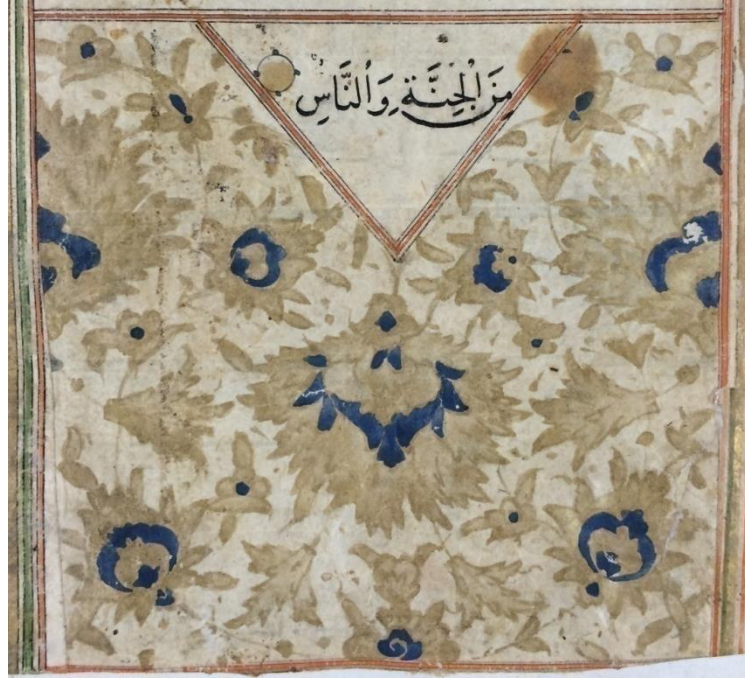 مِنَ الْجِنَّةِ وَالنَّاسِ